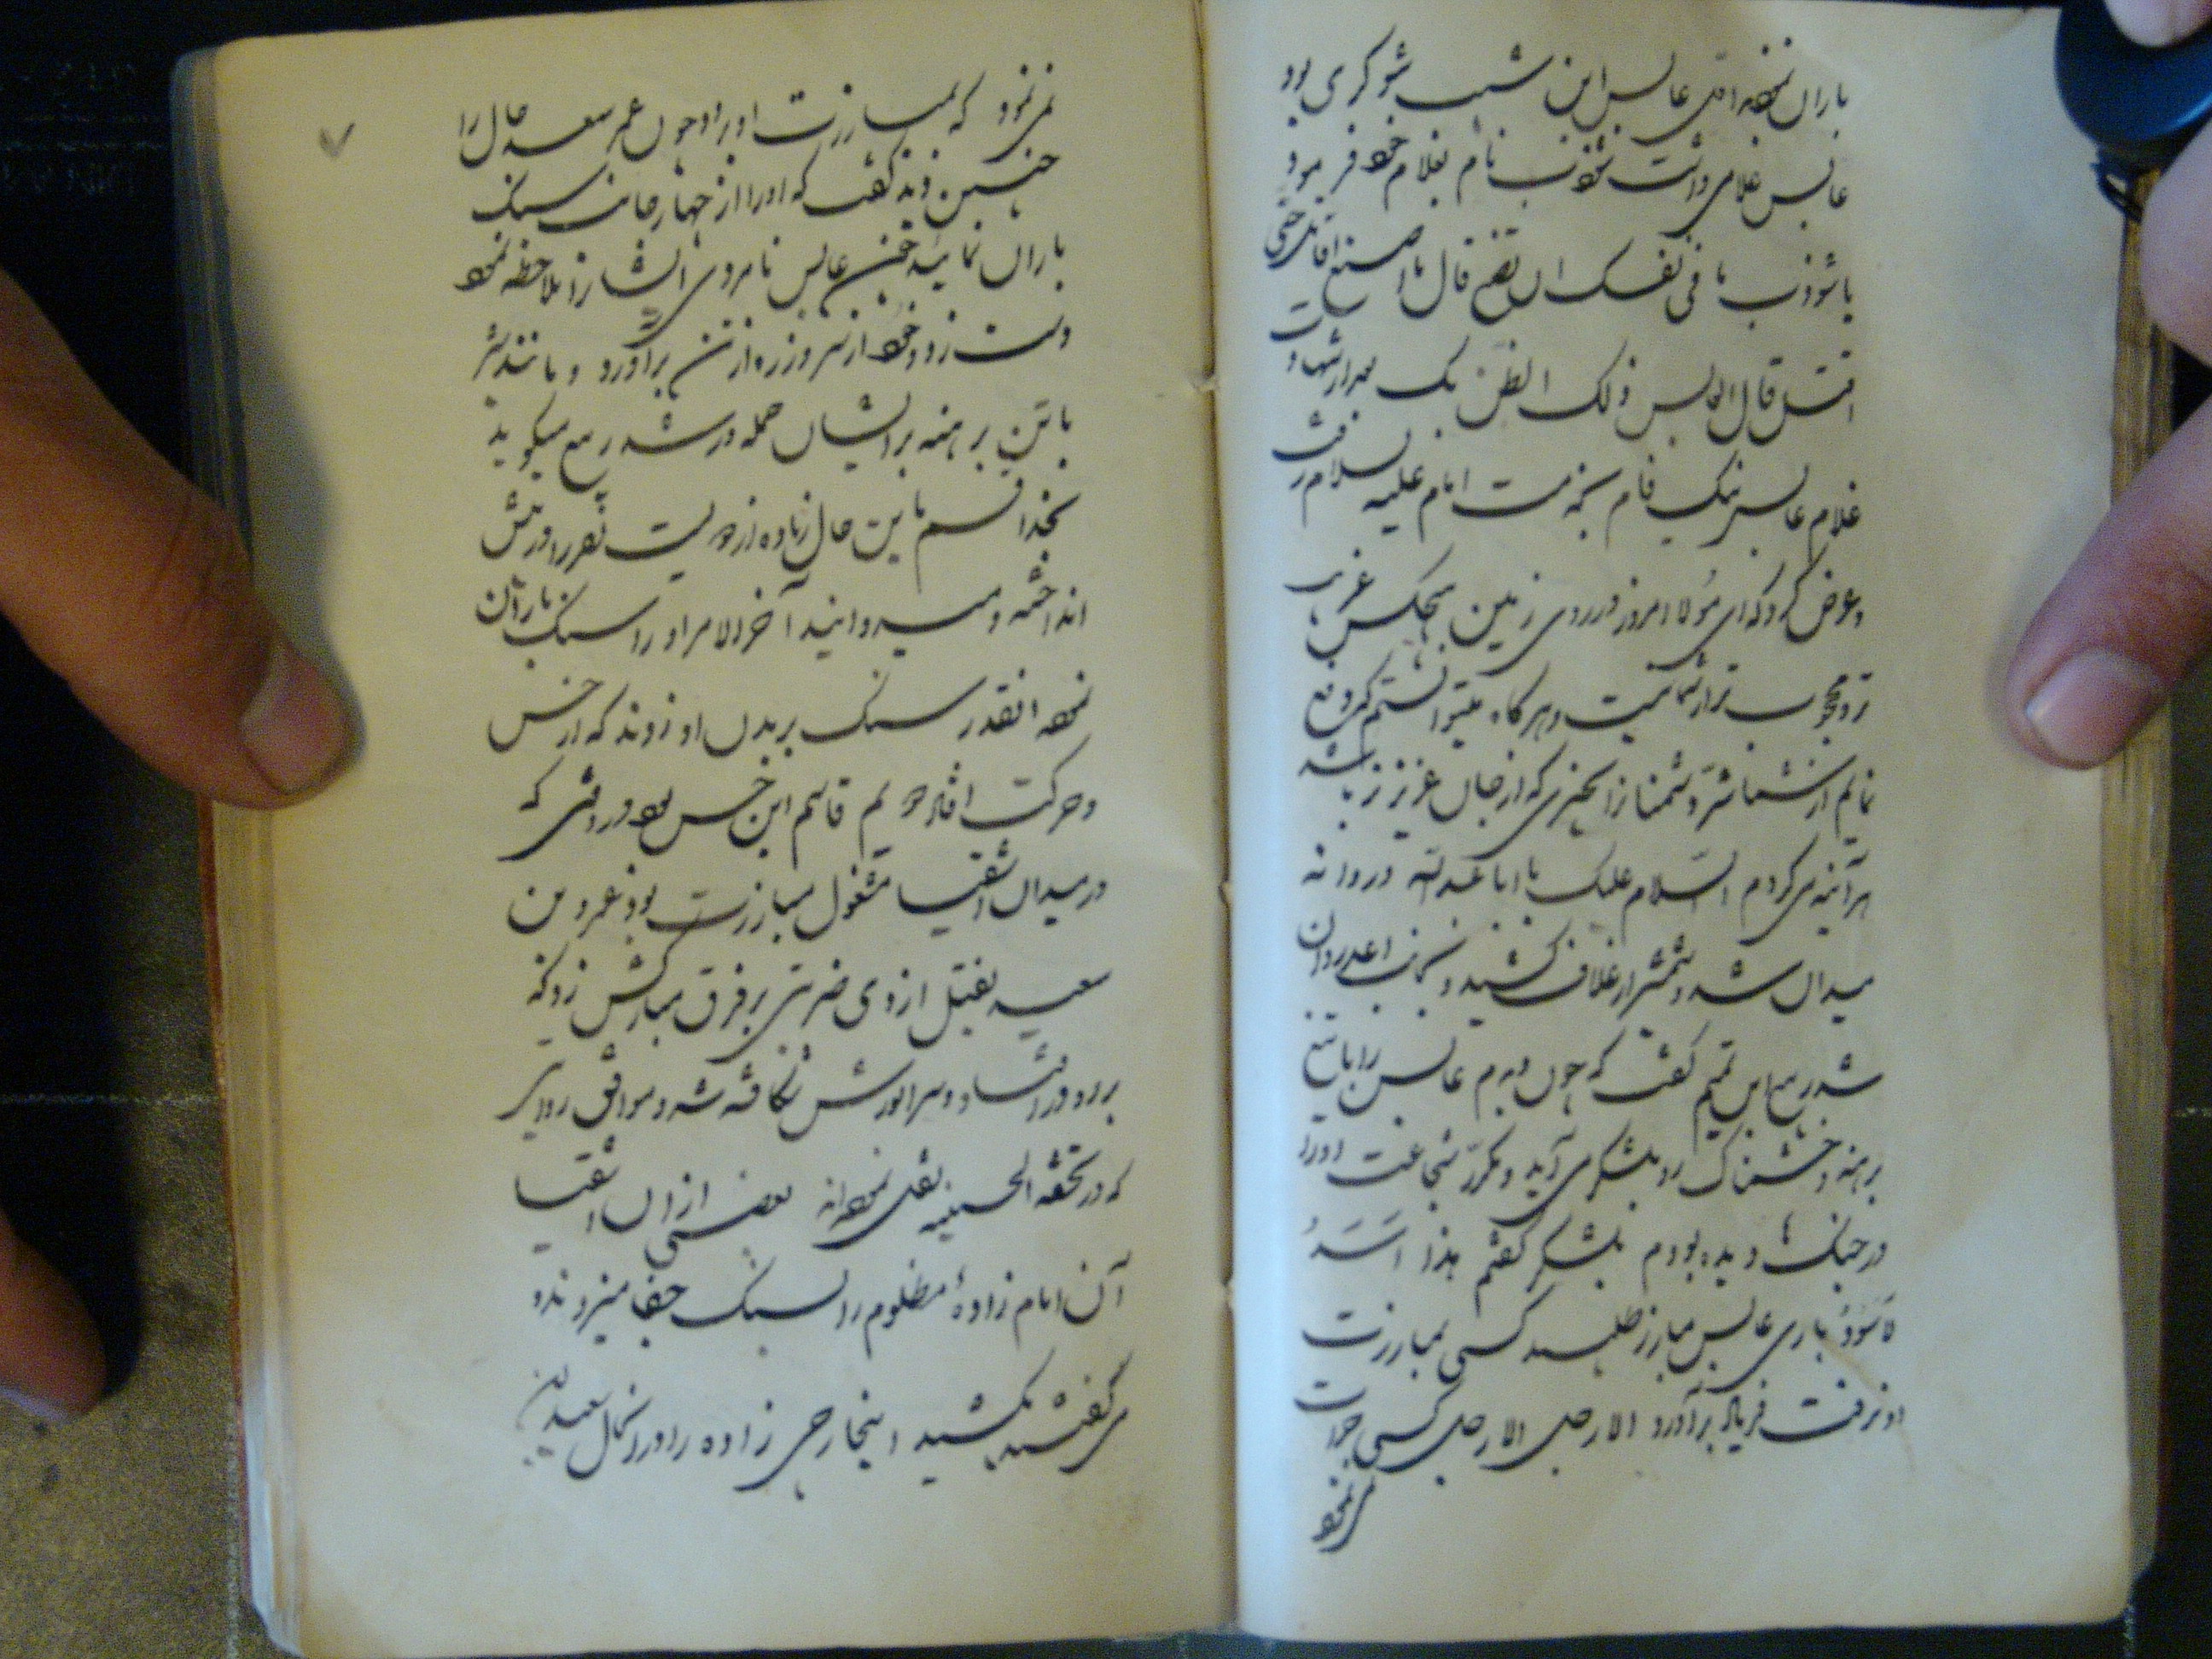 باران نموده اول عابس ابن شبیب شوکری بود
عابس غلامی داشت شوذب نام بغلام خود فرمود
یا شوذب ما فی نفسک ان تصنع قال ما اصنع اقاتل حتی
اقتل قال العابس ذلک الظن بک بعد از شهادت
غلام عابس نیک فام بخدمت امام علیه السلام رفت
و عرض کرد که ای مولا امروز در روی زمین هیچکس عزیز
تر و محبوب تر از شما نیست و هرگاه میتوانستم که دفع
نمایم از شما شر دشمنانرا بچیزی که از جان عزیز تر باشد
هر آینه می کردم السلام علیک یا ابا عبد الله و روانه
میدان شد و شمشیر از غلاف کشید و بجانب اعدا روان
شد ربیع ابن تمیم گفت که چون دیدم عابس را با تیغ
برهنه و خشمناک رو بلشکر می آید و مکرر شجاعت او را
در جنگ ها دیده بودم بلشکر گفتم هذا اسد
الاسود باری عابس مبارز طلبید کسی بمبارزت
او نرفت فریاد برآورد الا رجل الا رجل کسی جرات
نمی نمود
نمی نمود که بمبارزت او رود چون عمر سعد حال را
چنین دید گفت که او را از چهار جانب سنگ
باران نمائید چون عابس نامردی ایشانرا ملاحظه نمود
دست زد و خود از سر و زره از تن برآورد و مانند شیر
با تن برهنه بر ایشان حمله ور شد ربیع میگوید
بخدا قسم باین حال زیاده از دویست نفر را در پیش
انداخته و میدوانید آخر الامر او را سنگ باران
نموده انقدر سنگ بر بدن او زدند که از حس
و حرکت افتاد دویم قاسم ابن حسن بود در وقتی که
در میدان اشقیا مشغول مبارزت بود عمرو بن
سعید بقتل ازدی ضربتی بر فرق مبارکش زد که
برو در افتاد و سر انورش شکافته شد و موافق روایتی
که در تحفه الحسینیه نقل نموده اند بعضی از ان اشقیا
آن امام زاده مظلوم را سنگ جفا میزدند و
می گفتند بکشید این خارجی زاده را در انحال سعید بن